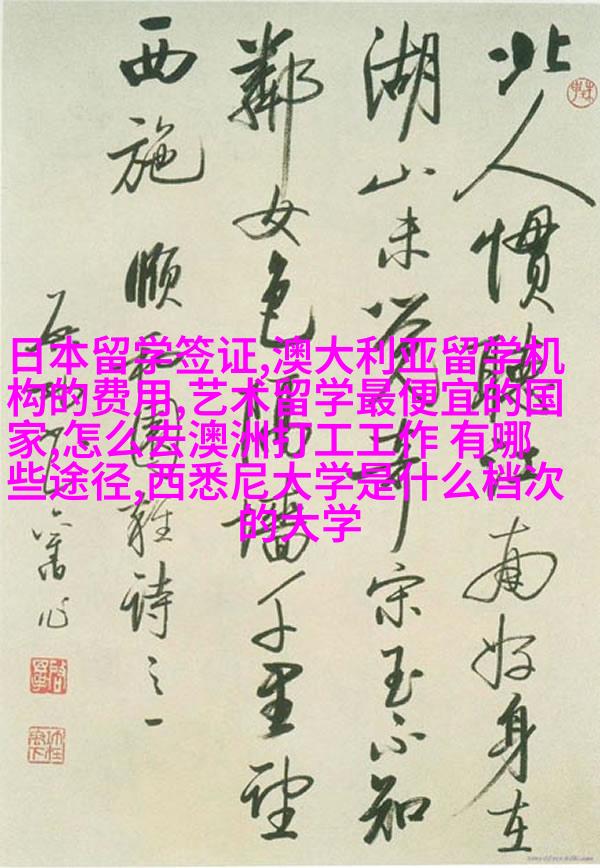 日本留学签证,澳大利亚留学机
构的费用,艺术留学最便宜的国
家,怎么去澳洲打工工作 有哪
些途径,西悉尼大学是什么档次
的大学
北人慣聽江南好身在
湖山未覺奇宋玉不知
鄰女色隔墙千里望
西施 頤和園雜詩之一
舊作